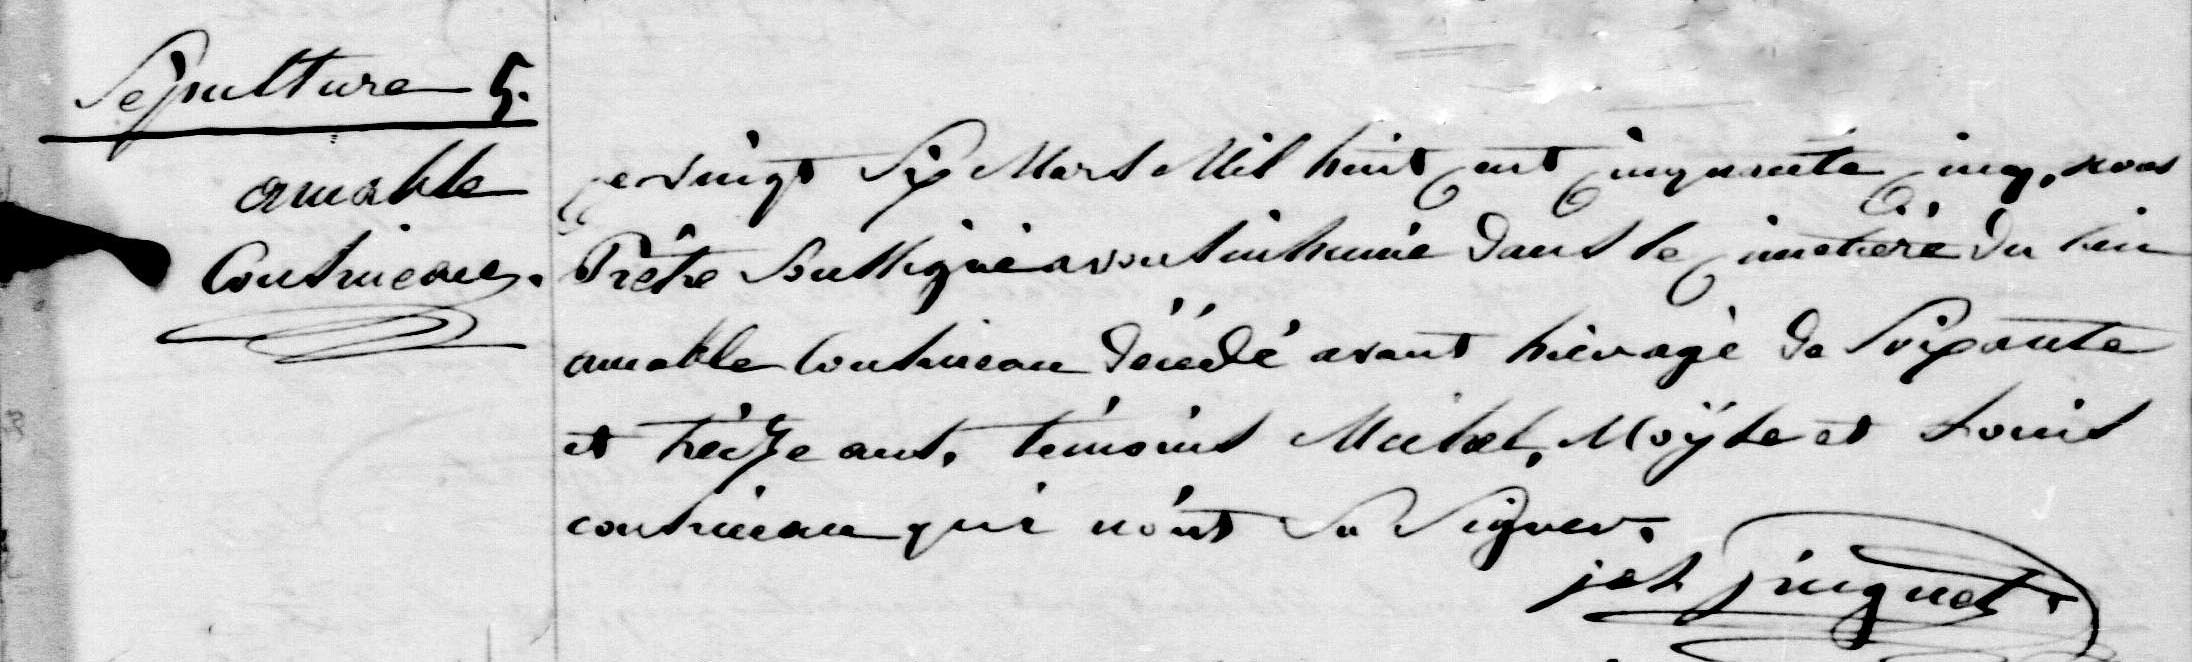 Sépulture 5.
amable
Cousineau.
Ce vingt Six Mars Mil huit Cent Cinquante Cinq, nous
Prêtre Soussigné avons inhumé dans le Cimetière du lieu
amable Cousineau décédé avant hièr agé de Soixante
et treize ans. témoins Michel, Moÿse et Louis
cousineau qui n'ont su signer.